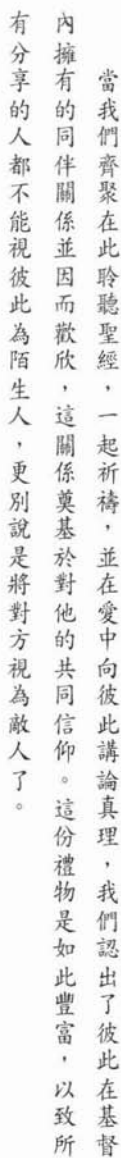 當我們齊聚在此聆聽聖經，一起祈禱，並在愛中向彼此講論真理，我們認出了彼此在基督
內擁有的同伴關係並因而歡欣，這關係奠基於對他的共同信仰。這份禮物是如此豐富，以致所
有分享的人都不能視彼此為陌生人，更別說是將對方視為敵人了。